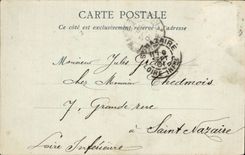 CARTE POSTALE
Ce côté est exclusivement réservé à l'adresse
Monsieur Jules
Chez Monsieur Thedmois
7, Grande rue
à Saint Nazaire
Loire Inférieure